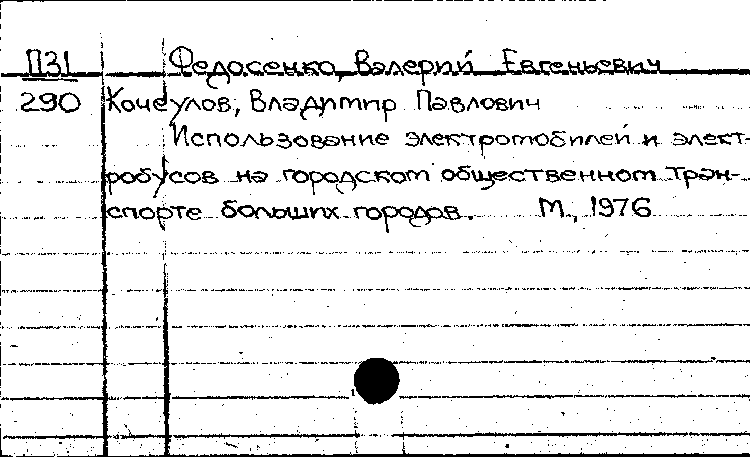 П31 Федосенко, Валерий Евгеньевич
290 Кочеулов, Владимир Павлович
Использование электромобилей и элект-
робусов на городском общественном тран-
спорте больших городов. М., 1976